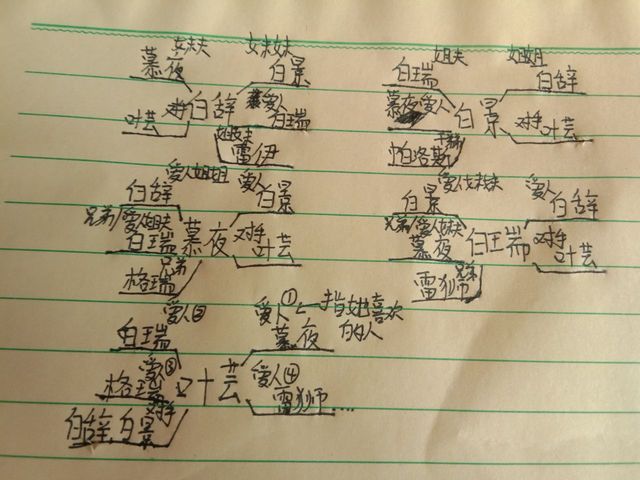 妹夫 妹妹 姐夫 姐姐
慕夜 白景 白瑞 白辞
对手 白辞 爱人 慕夜爱人 白景 对手
叶芸 白瑞 叶芸
雷伊 帕洛斯
爱人姐姐 爱人 爱人妹妹 爱人
白辞 白景 白景 白辞
兄弟/爱人姐夫 慕夜 对手 兄弟/爱人妹夫 白瑞 对手
白瑞 叶芸 慕夜 叶芸
兄弟 兄弟
格瑞 雷狮
爱人② 爱人①←指她喜欢的人
白瑞 慕夜
爱人③ 叶芸 爱人④
格瑞 雷狮....
对手
白辞、白景